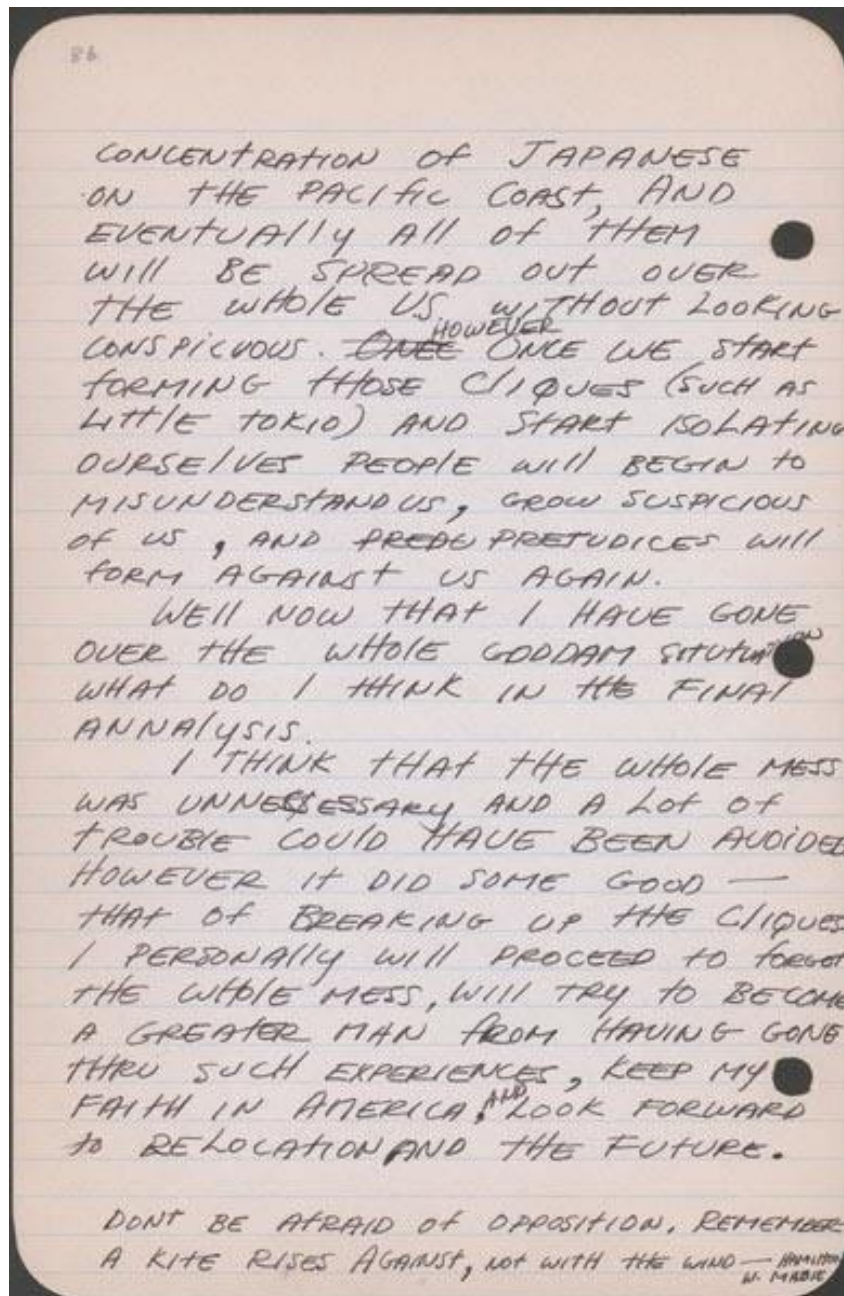 86
CONCENTRATION OF JAPANESE
ON THE PACIFIC COAST, AND
EVENTUALLY ALL OF THEM
WILL BE SPREAD OUT OVER
THE WHOLE US WITHOUT LOOKING
CONSPICUOUS. ONCE HOWEVER ONCE WE START
FORMING THOSE CLIQUES (SUCH AS
LITTLE TOKIO) AND START ISOLATING
OURSELVES PEOPLE WILL BEGIN TO
MISUNDERSTAND US, GROW SUSPICIOUS
OF US, AND PREDU PRETUDICES WILL
FORM AGAINST US AGAIN.
WELL NOW THAT I HAVE GONE
OVER THE WHOLE GODDAM SITUTUATION
WHAT DO I THINK IN THE FINAL
ANNALYSIS.
I THINK THAT THE WHOLE MESS
WAS UNNESSESSARY AND A LOT OF
TROUBLE COULD HAVE BEEN AVOIDED
HOWEVER IT DID SOME GOOD —
THAT OF BREAKING UP THE CLIQUES
I PERSONALLY WILL PROCEED TO FORGET
THE WHOLE MESS, WILL TRY TO BECOME
A GREATER MAN FROM HAVING GONE
THRU SUCH EXPERIENCES, KEEP MY
FAITH IN AMERICA, AND LOOK FORWARD
TO RELOCATION AND THE FUTURE.
DONT BE AFRAID OF OPPOSITION. REMEMBER
A KITE RISES AGAINST, NOT WITH THE WIND — HAMILTON
W. MABIE